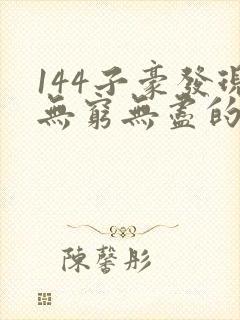 144子豪發現
無窮無盡的
陳馨彤